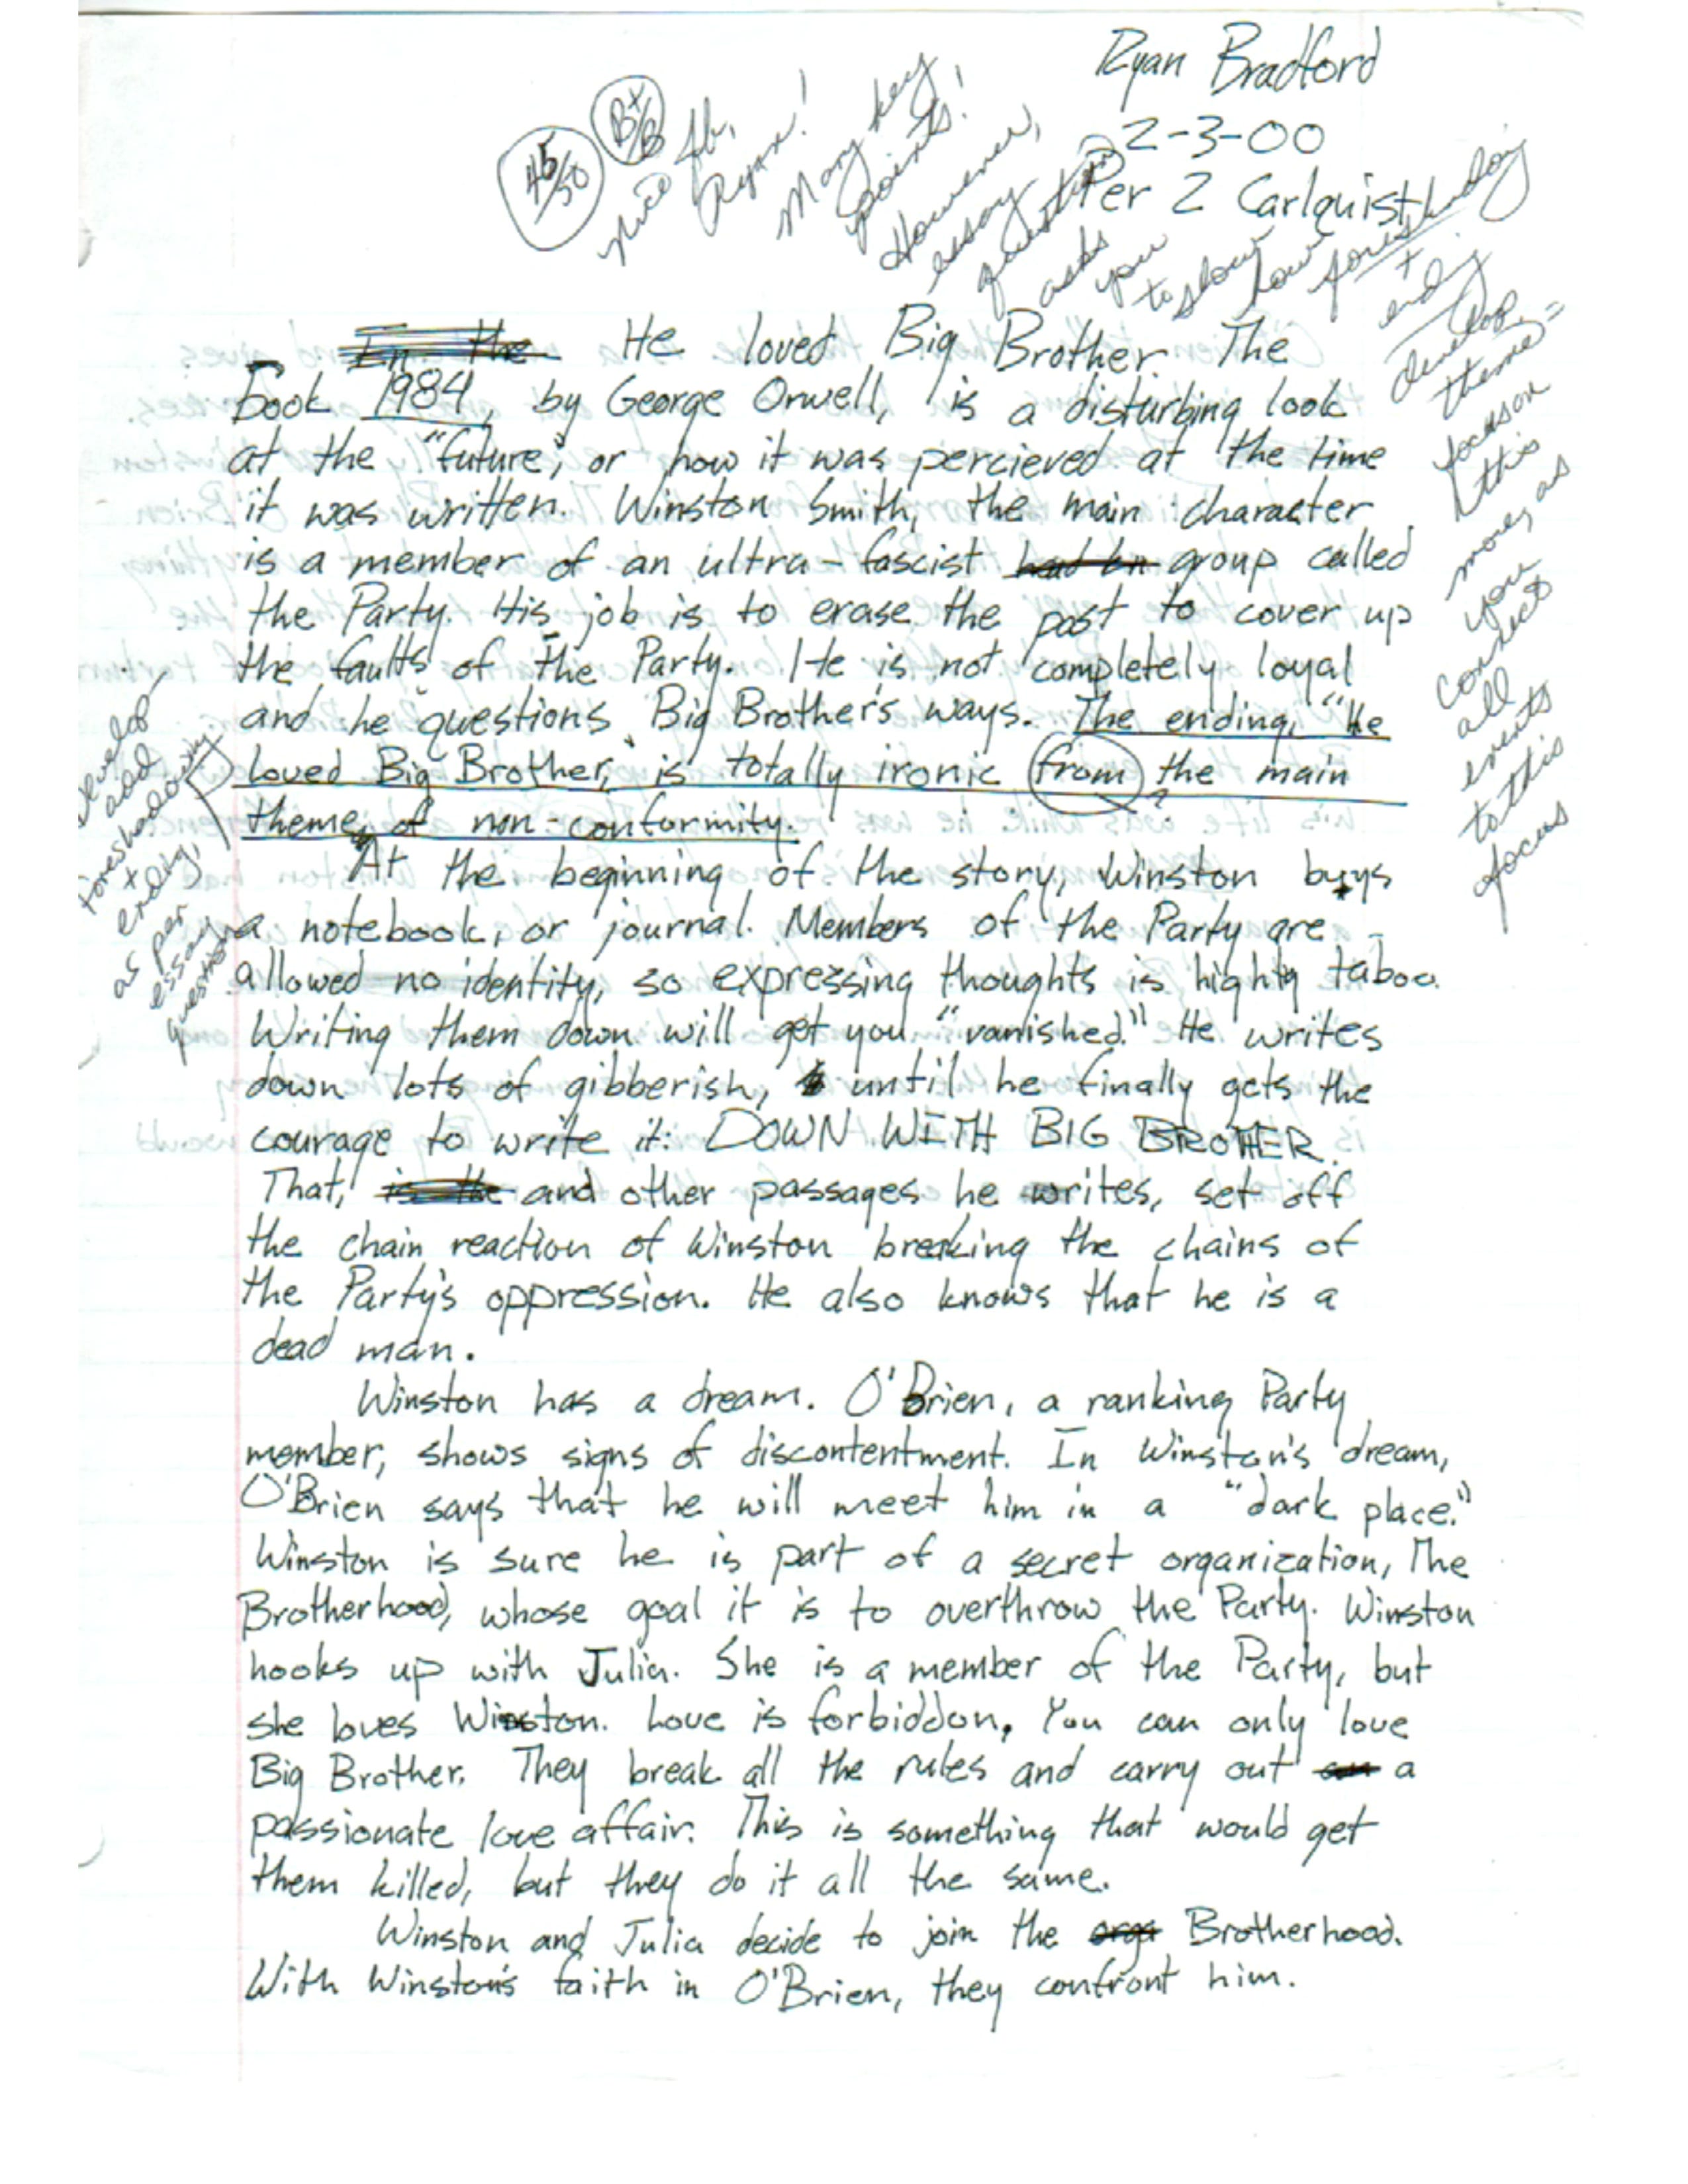 Ryan Bradford
2-3-00
Per 2 Carlquist
45/50
B+/B
Nice Job,
Ryan!
Many key
points!
However,
essay
question
asks
you
to show
how
foreshadowing
+
ending
develop
theme =
focus on
this
more, as
you
connect
all
events
to this
focus
In the He loved Big Brother. The
book 1984, by George Orwell, is a disturbing look
at the "future", or how it was percieved at the time
it was written. Winston Smith, the main character
is a member of an ultra-fascist group called
the Party. His job is to erase the past to cover up
the faults of the Party. He is not completely loyal
and he questions Big Brother's ways. The ending, "He
loved Big Brother," is totally ironic from the main
theme of non-conformity.
develop
add
foreshadowing
+
ending,
as per
essay
question
At the beginning of the story, Winston buys
a notebook, or journal. Members of the Party are
allowed no identity, so expressing thoughts is highly taboo.
Writing them down will get you "vanished." He writes
down lots of gibberish, until he finally gets the
courage to write it: DOWN WITH BIG BROTHER.
That, is the and other passages he writes, set off
the chain reaction of Winston breaking the chains of
the Party's oppression. He also knows that he is a
dead man.
Winston has a dream. O'Brien, a ranking Party
member, shows signs of discontentment. In Winston's dream,
O'Brien says that he will meet him in a "dark place."
Winston is sure he is part of a secret organization, The
Brotherhood, whose goal it is to overthrow the Party. Winston
hooks up with Julia. She is a member of the Party, but
she loves Winston. Love is forbiddon, You can only love
Big Brother. They break all the rules and carry out an a
passionate love affair. This is something that would get
them killed, but they do it all the same.
Winston and Julia decide to join the orga Brotherhood.
With Winston's faith in O'Brien, they confront him.